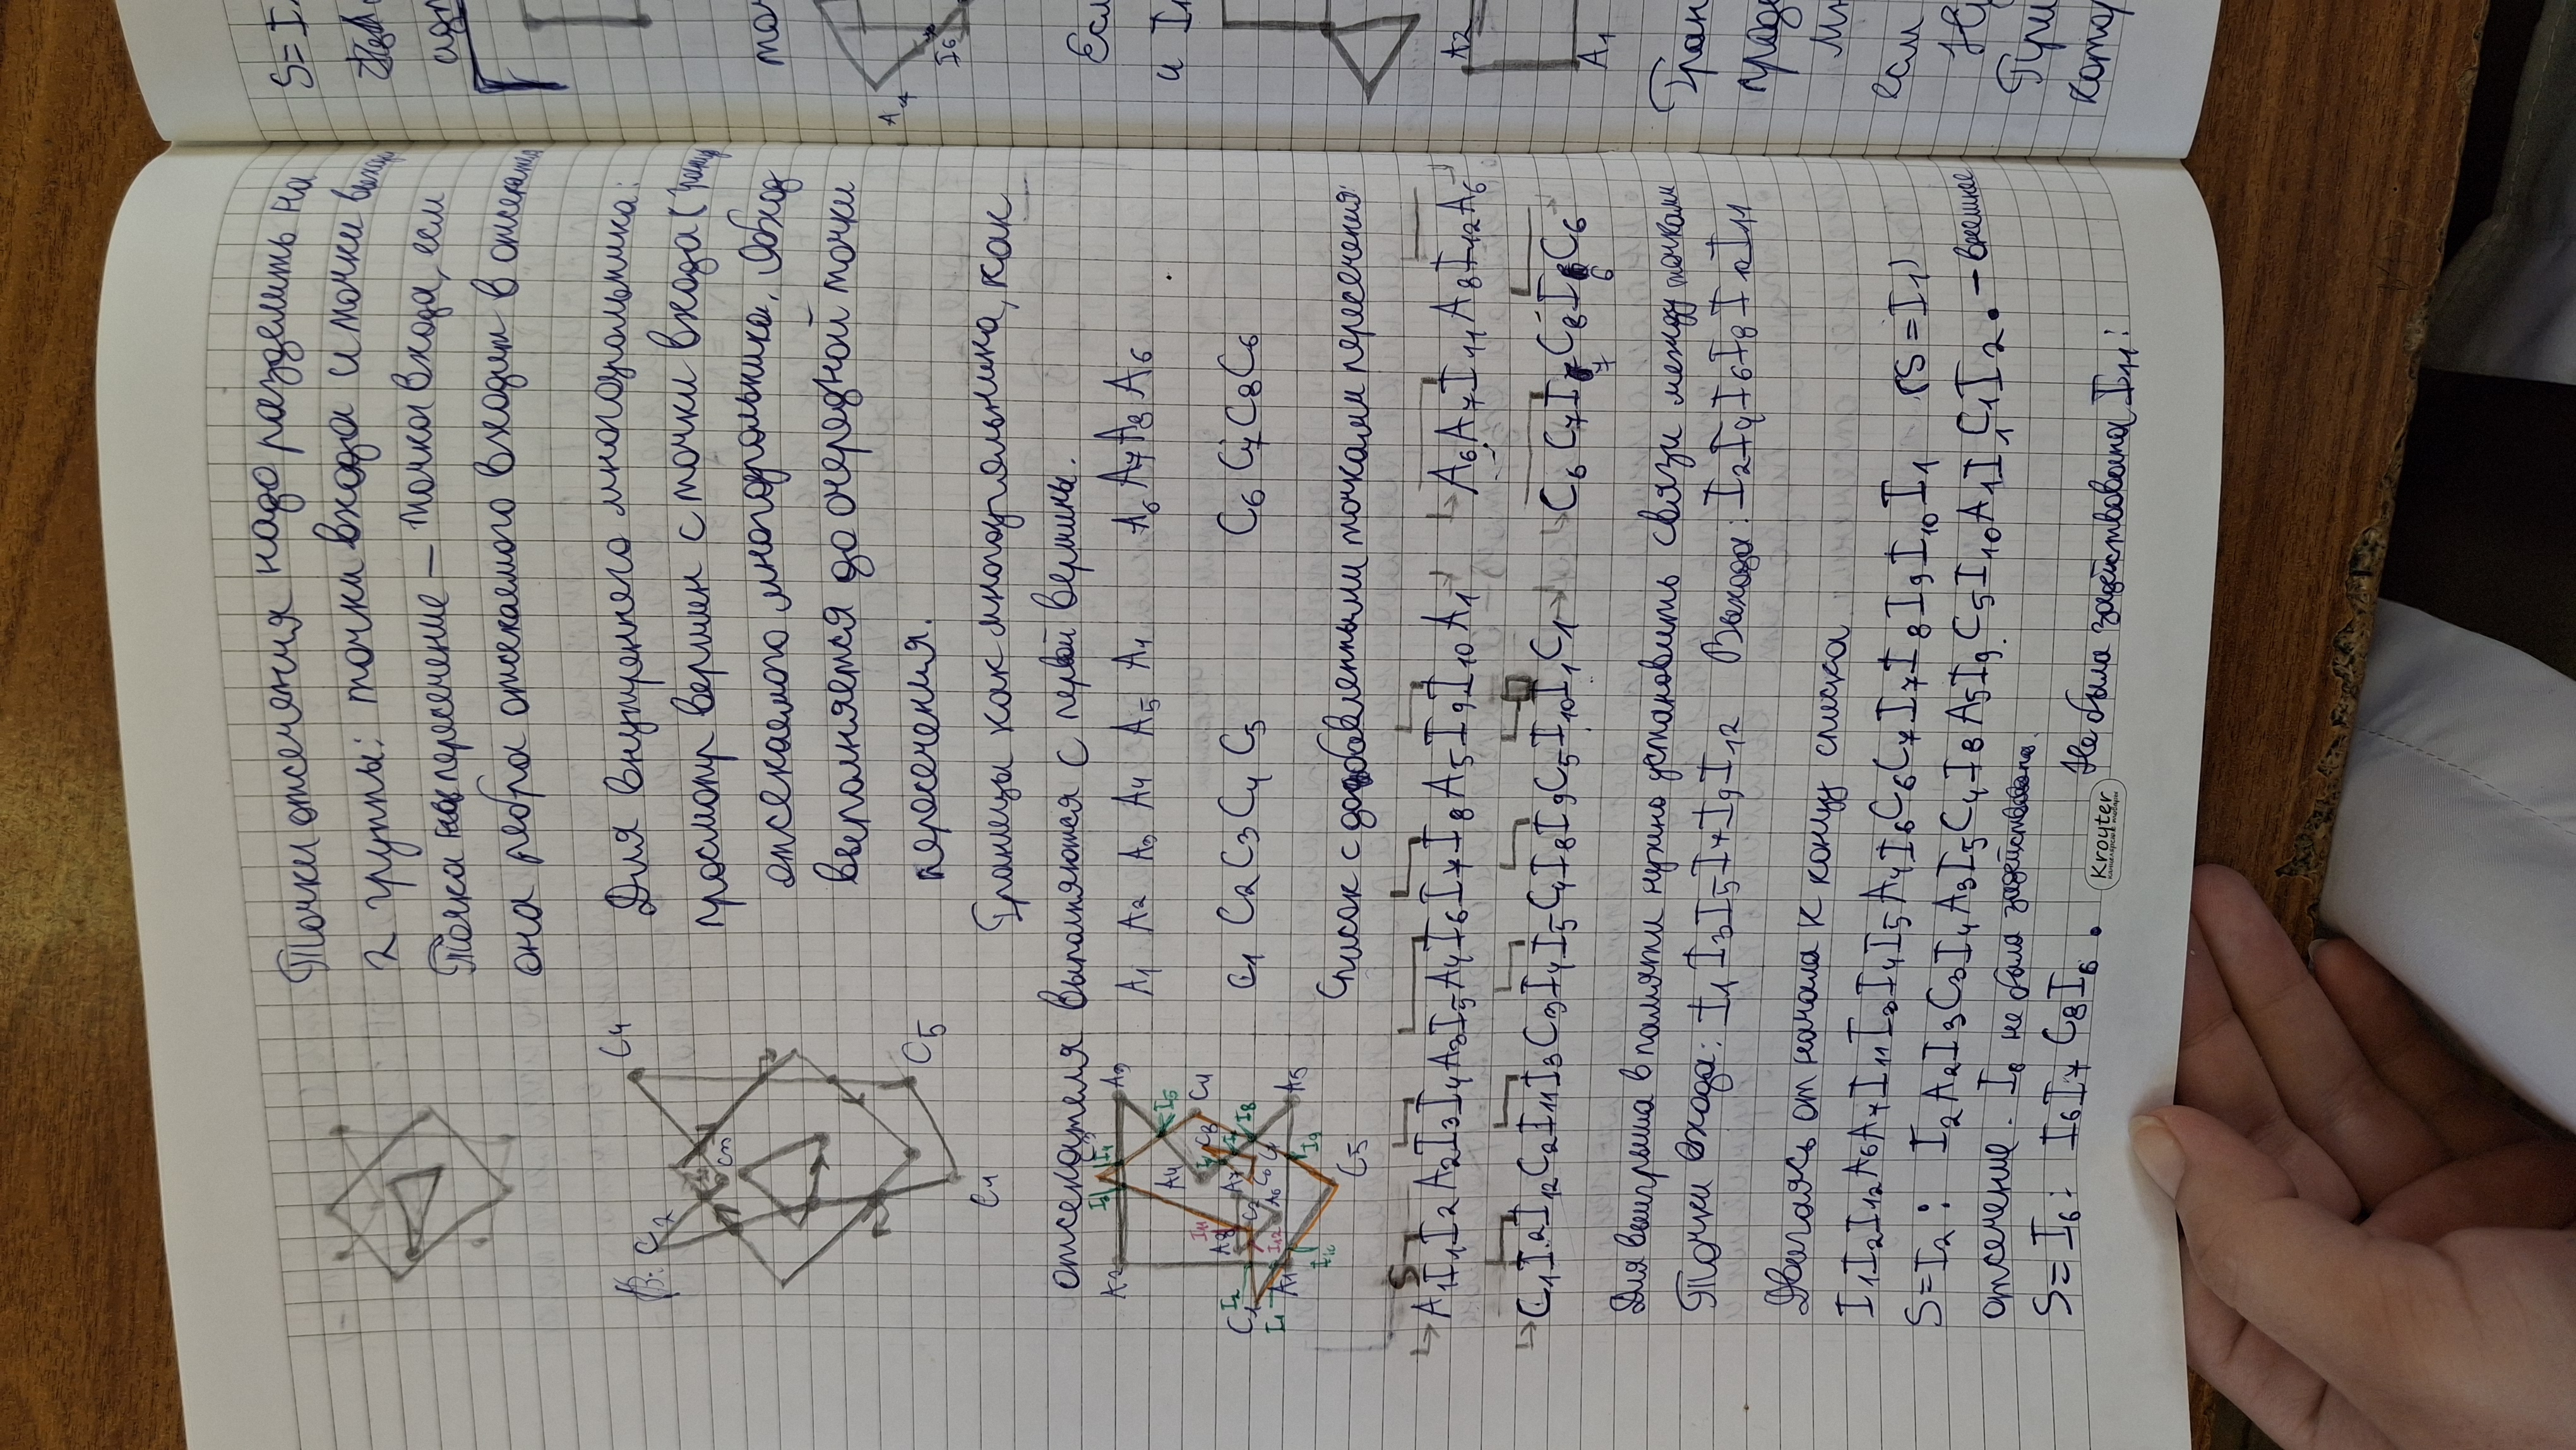 Точки отсечения надо разделить на
2 группы: точки входа и точки выхода
Точка пересечение – точка входа, если
она ребра отсекаемого входит в отсекатель
В: C2
C4
C3
C5
C1
Для внутреннего многоугольника:
просмотр вершин с точки входа (
отсекаемого многоугольника. Обход
выполняется до очередной точки
пересечения.
Границы как многоугольника, как
отсекателя выполняются с первой вершины.
A1 A2 A3 A4 A5 A1 A6 A7 A8 A6
C1 C2 C3 C4 C5 C6 C7 C8 C6
A2 I3 I4 A3
A4 I5
I11 C3 C4
A8 A7
C1 I2 C2 C6 I8
I1 A1 I12 A6 A5
I10 I9
C5
Список с добавленными точками пересечения:
S
A1 I1 I2 A2 I3 I4 A3 I5 A4 I6 I7 I8 A5 I9 I10 A1 A6 A7 I11 A8 I12 A6
C1 I2 I12 C2 I11 I3 C3 I4 I5 C4 I8 I9 C5 I10 I1 C1 C6 C7 I7 C8 I6 C6
7 6
Для выигрыша в памяти нужно установить связи между точками
Точки входа: I1 I3 I5 I7 I9 I12 Выхода: I2 I4 I6 I8 I10 I11
Двигаясь от начала к концу списка
I1 I2 I12 A6 A7 I11 I3 I4 I5 A4 I6 C6 C7 I7 I8 I9 I10 I1 (S=I1)
S=I2: I2 A2 I3 C3 I4 A3 I5 C4 I8 A5 I9 C5 I10 A1 I1 C1 I2. – внешнее
отсечение. I6 не была задействована.
S=I6: I6 I7 C8 I6. Не была задействована I11:
Kroyter
канцелярские товары
S=I
A4
I6
Есл
и I1
A2
A1
Гран
если
При
котор